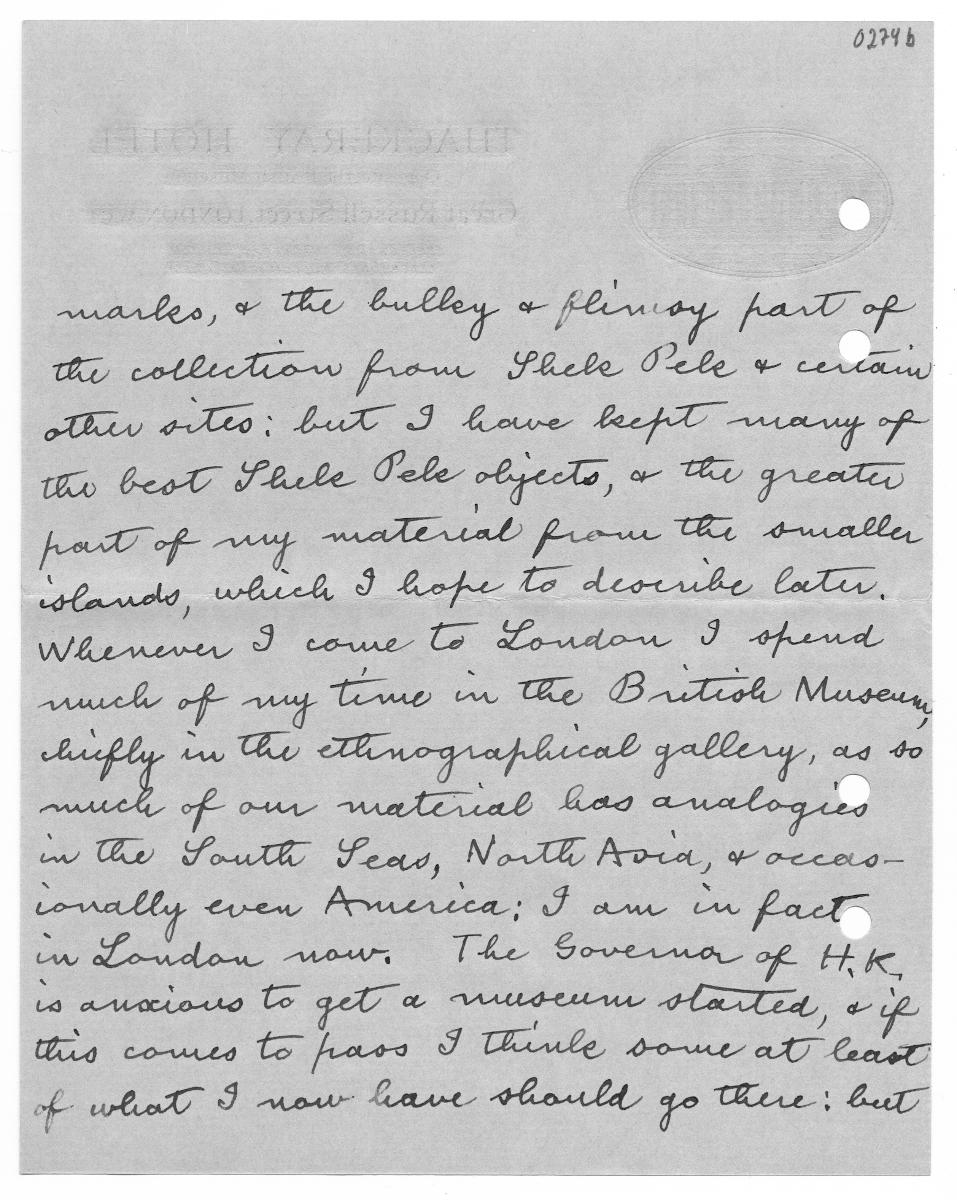 0274b
THACKERAY HOTEL
Great Russell Street LONDON WC1
marks, & the bulky & flimsy part of
the collection from Shek Pek & certain
other sites; but I have kept many of
the best Shek Pek objects, & the greater
part of my material from the smaller
islands, which I hope to describe later.
Whenever I come to London I spend
much of my time in the British Museum,
chiefly in the ethnographical gallery, as so
much of our material has analogies
in the South Seas, North Asia, & occas-
ionally even America; I am in fact
in London now. The Governor of H.K.
is anxious to get a museum started, & if
this comes to pass I think some at least
of what I now have should go there: but